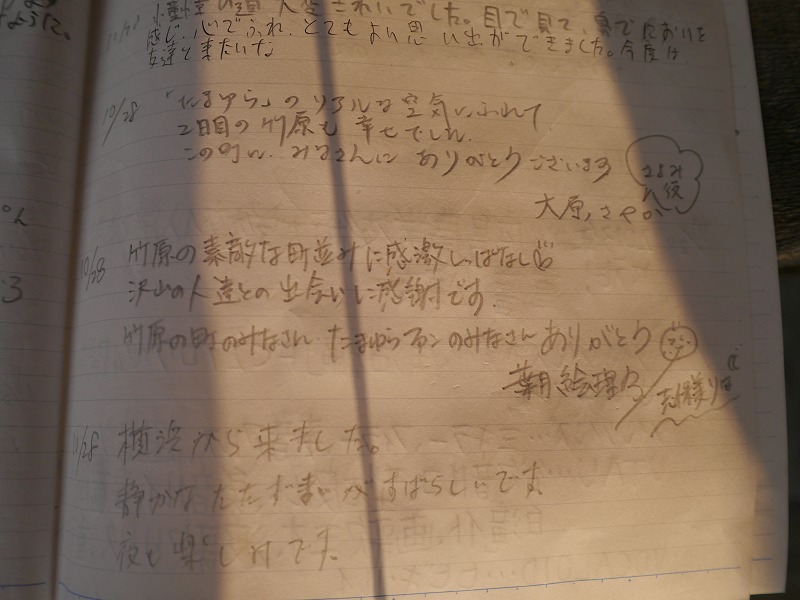 感じ、心でふれ、とてもよい思い出ができました。今度は
友達と来たいな
10/28 「たまゆら」のリアルな空気にふれて
2日目の竹原も幸せでした。
この町に、みなさんにありがとうございます
さよみ
大原さやか
10/28 竹原の素敵な町並みに感激しっぱなし
沢山の人達との出会いに感謝です。
竹原の町のみなさん たまゆらファンのみなさん ありがとう
葉月絵理乃
10/28 横浜から来ました。
静かなたたずまいがすばらしいです。
夜も楽しみです。